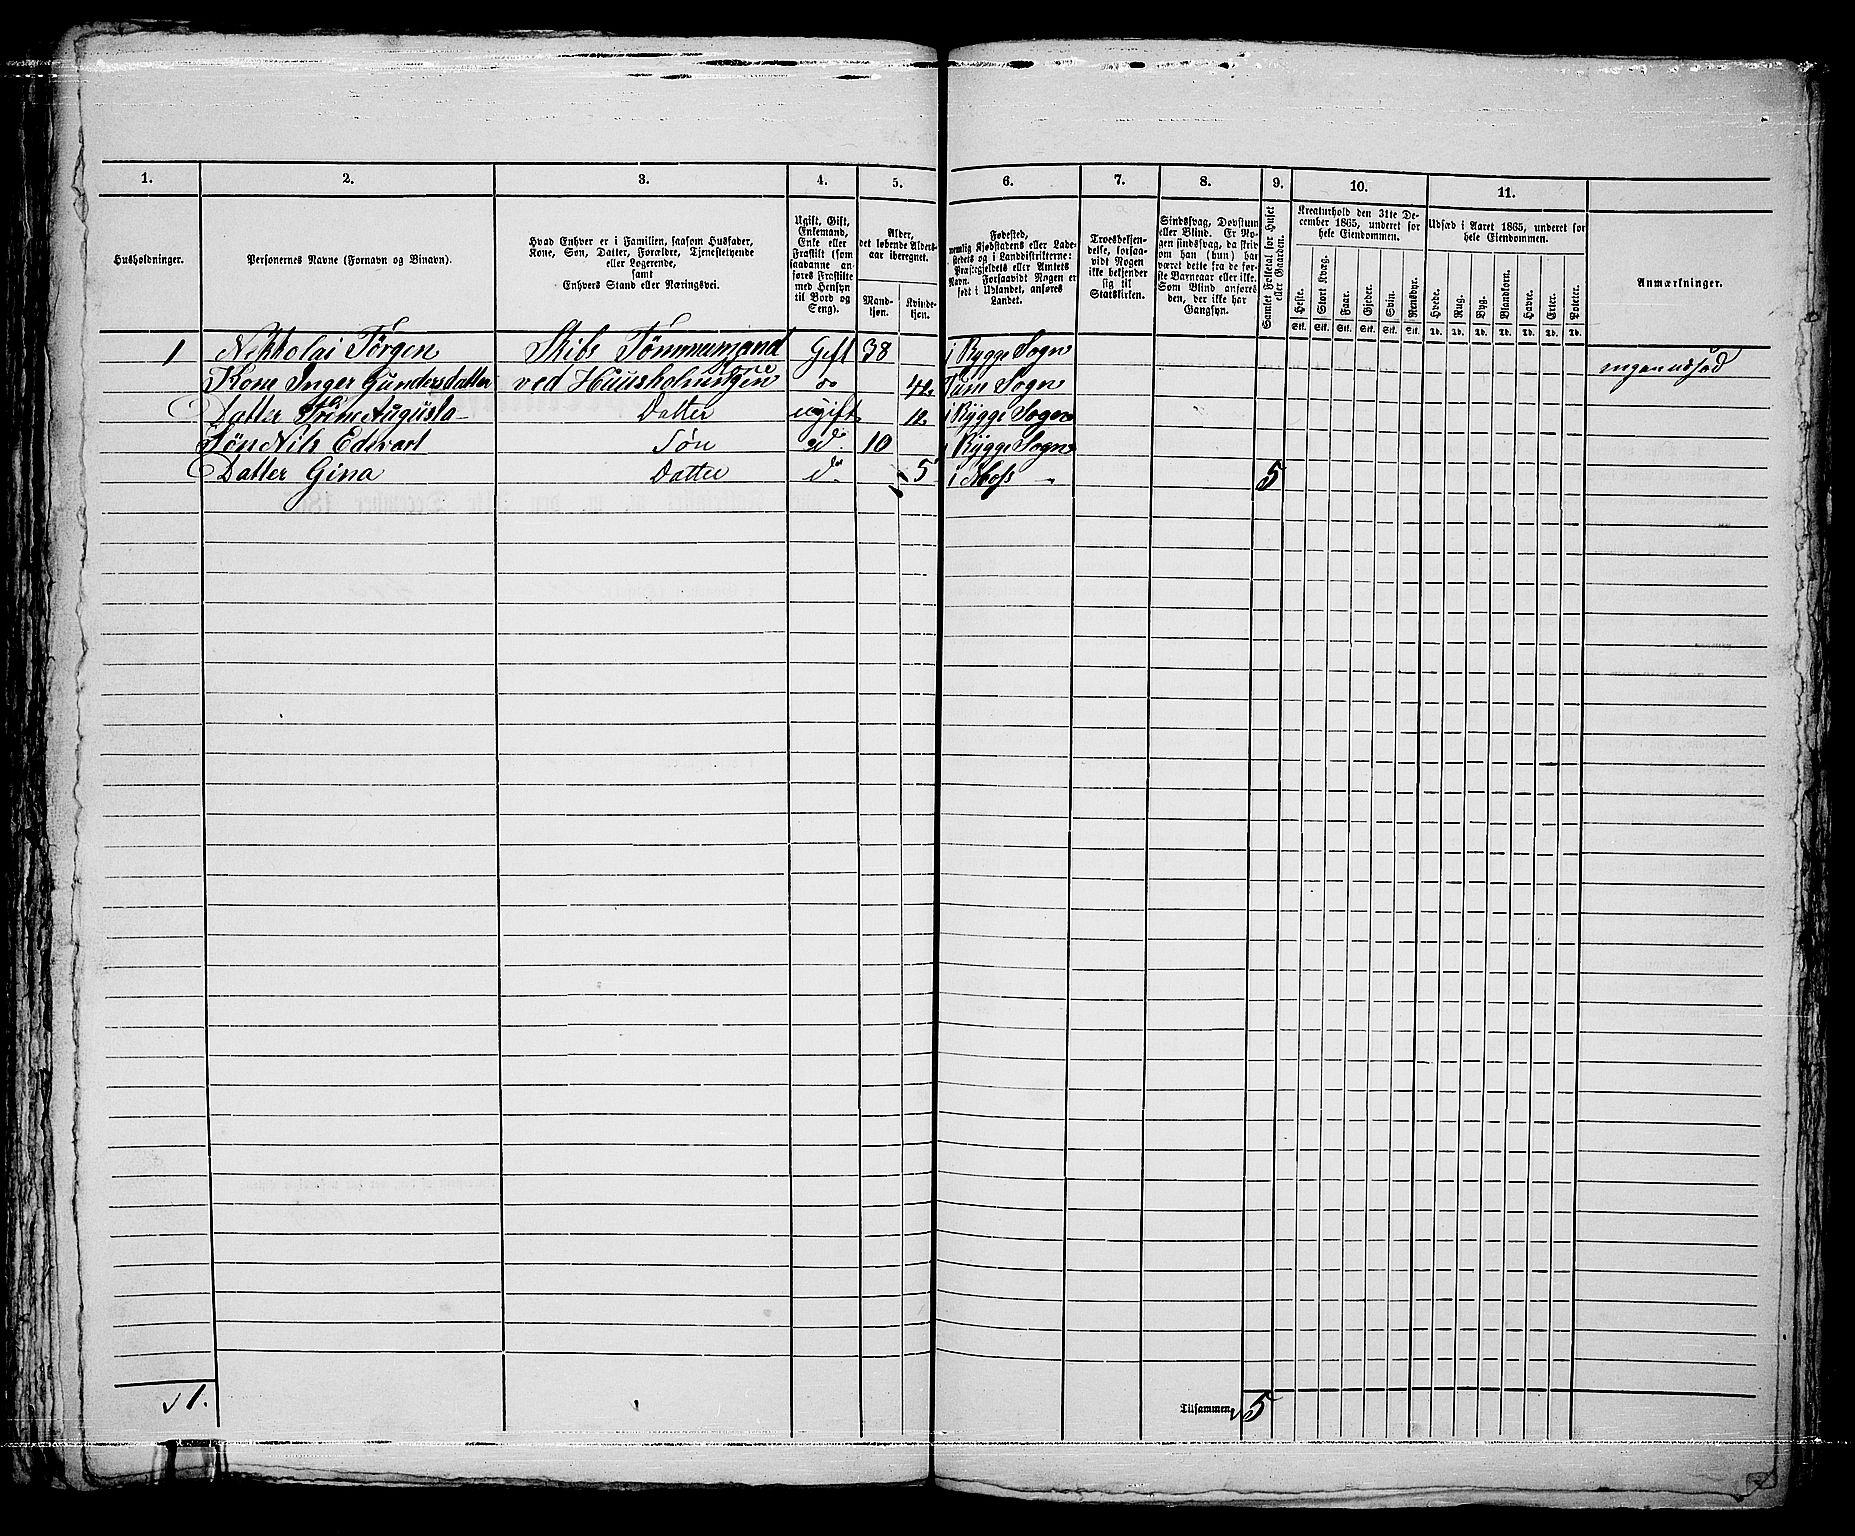 1. 2. 3. 4. 5. 6. 7. 8. 9. 10. 11.
Husholdninger.
Personernes Navne (Fornavn og Binavn).
Hvad Enhver er i Familien, saasom Husfader,
Kone, Søn, Datter, Forældre, Tjenestetyende
eller Logerende,
samt
Enhvers Stand eller Næringsvei.
Ugift, Gift,
Enkemand,
Enke eller
Fraskilt (som
saadanne an-
føres Fraskilte
med Hensyn
til Bord og
Seng).
Alder,
det løbende Alders-
aar iberegnet.
Mand-
kjøn.
Kvinde-
kjøn.
Fødested,
nemlig Kjøbstadens eller Lade-
stedets og i Landdistrikterne:
Præstegjeldets eller Amtets
Navn. Forsaavidt Nogen er
født i Udlandet, anføres
Landet.
Troesbekjen-
delse, forsaa-
vidt Nogen
ikke bekjender
sig til
Statskirken.
Sindssvag, Døvstum
eller Blind. Er No-
gen sindssvag, da skriv
om han (hun) har
været dette fra de før-
ste Barneaar eller ikke.
Som Blind anføres
den, der ikke har
Gangsyn.
Samlet Folketal for Huset
eller Gaarden.
Kreaturhold den 31te De-
cember 1865, underet for
hele Eiendommen.
Heste. Stort Kvæg. Faar. Gjeder. Svin. Rensdyr.
Stk. Stk. Stk. Stk. Stk. Stk.
Udsæd i Aaret 1865, underet for
hele Eiendommen.
Hvede. Rug. Byg. Blandkorn. Havre. Erter. Poteter.
Td. Td. Td. Td. Td. Td. Td.
Anmærkninger.
1 Nekholai Jørgen Skibs Tømmermand Gift 38 i Rygge Sogn ingen udsæd
Kone Inger Gundersdatter ved Huusholningen Kone do 42 Sogn
Datter Augusta Datter ugift 12 i Rygge Sogn
Søn Nils Edvart Søn d 10 i Rygge Sogn
Datter Gina Datter d 5 i Moss 5
1.
Tilsammen 5